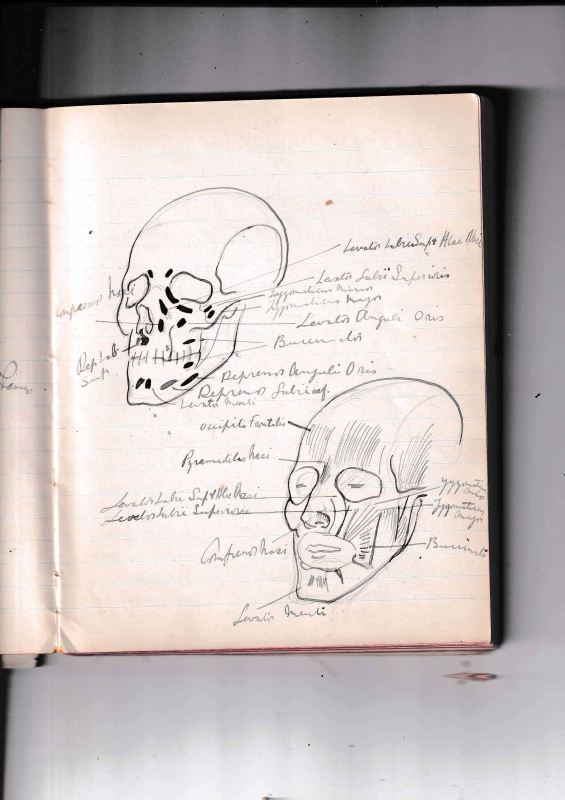 Levator Labii Sup & Alae Nasi
Levator Labii Superioris
Zygomaticus Minor
Zygomaticus Major
Compressor Nasi
Levator Anguli Oris
Dep Lab
Sup
Depressor Anguli Oris
Depressor Labii inf.
Levator Menti
Occipito Frontalis
Pyramidilis Nasi
Levator Labii Sup & Alae Nasi
Levator Labii Superioris
Zygomaticus
Minor
Zygomaticus
Major
Compressor Nasi
Levator Menti